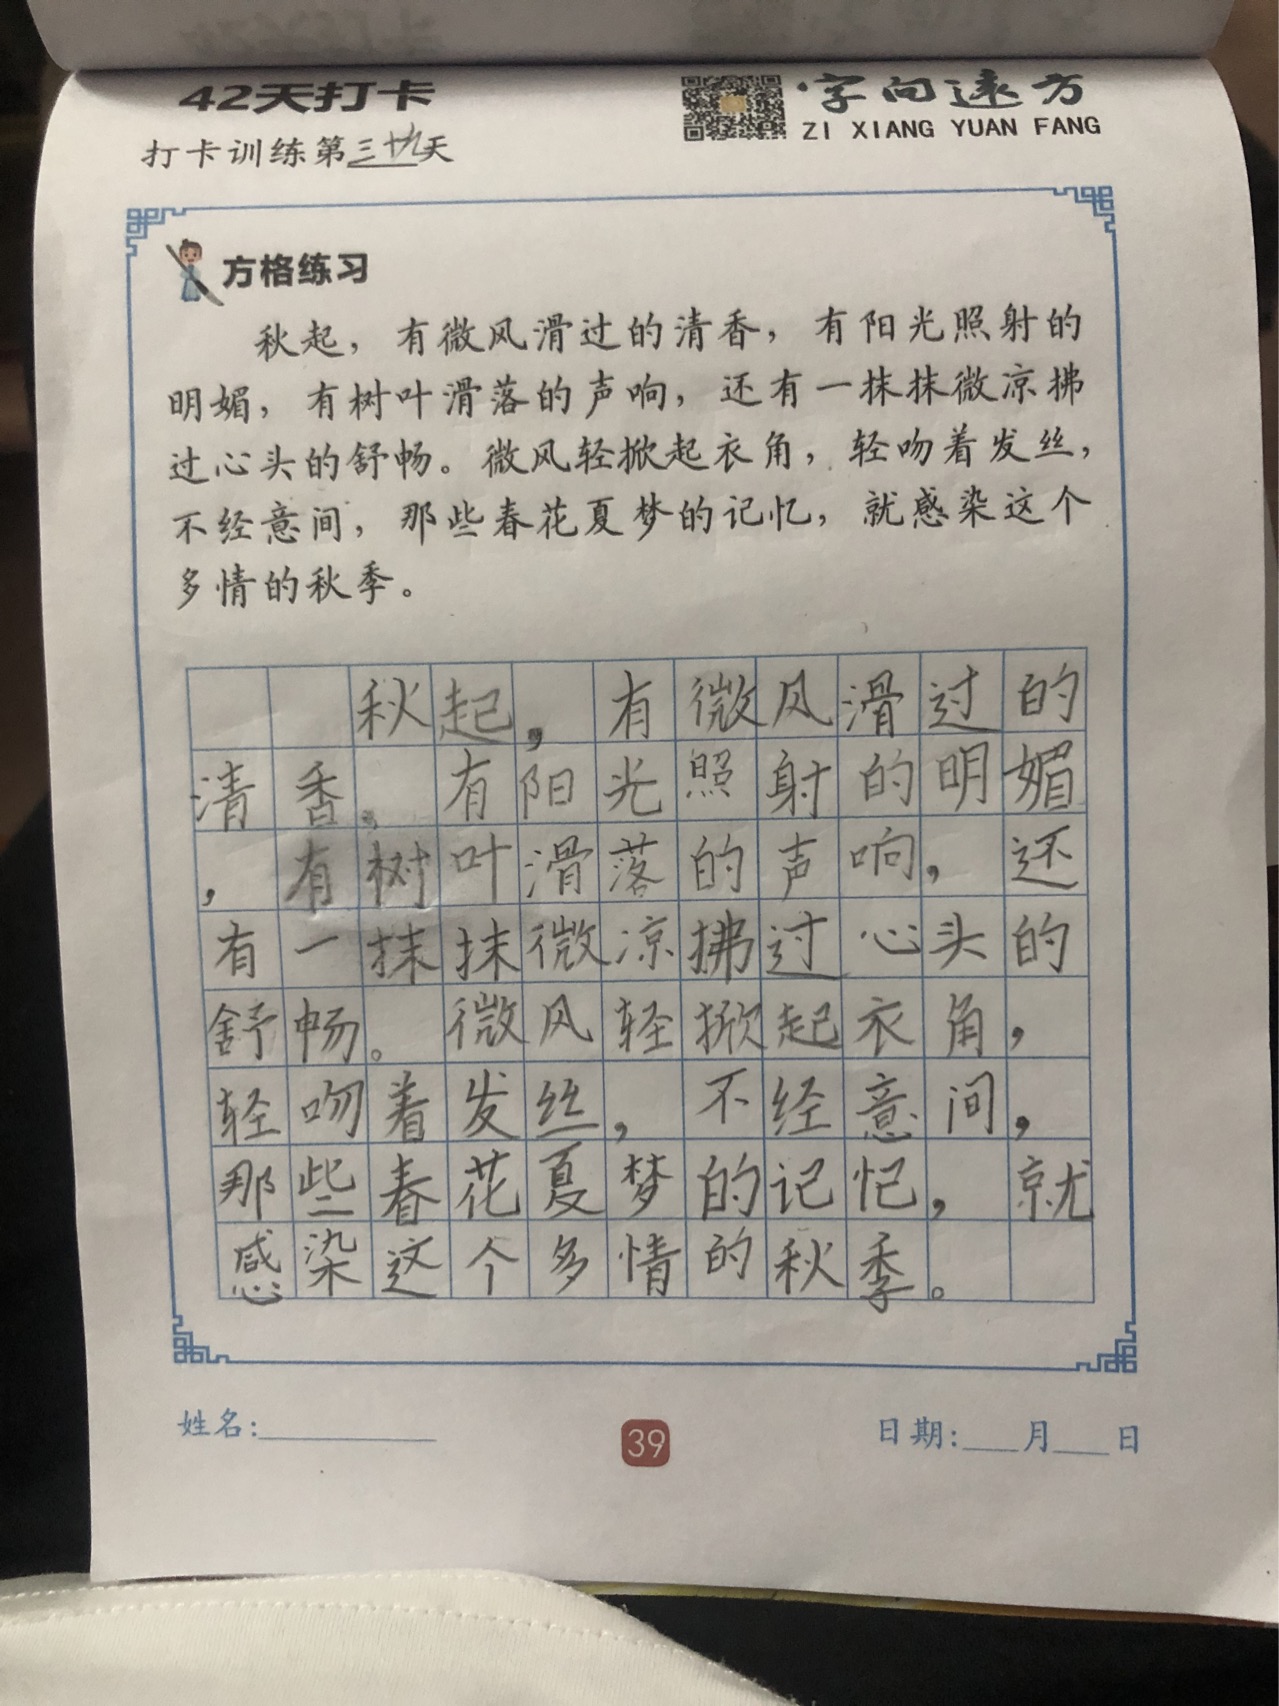 42天打卡
字向远方
ZI XIANG YUAN FANG
打卡训练第三十九天
方格练习
秋起，有微风滑过的清香，有阳光照射的
明媚，有树叶滑落的声响，还有一抹抹微凉拂
过心头的舒畅。微风轻掀起衣角，轻吻着发丝，
不经意间，那些春花夏梦的记忆，就感染这个
多情的秋季。
秋起，有微风滑过的
清香，有阳光照射的明媚
，有树叶滑落的声响，还
有一抹抹微凉拂过心头的
舒畅。微风轻掀起衣角，
轻吻着发丝，不经意间，
那些春花夏梦的记忆，就
感染这个多情的秋季。
姓名:
39
日期: 月 日